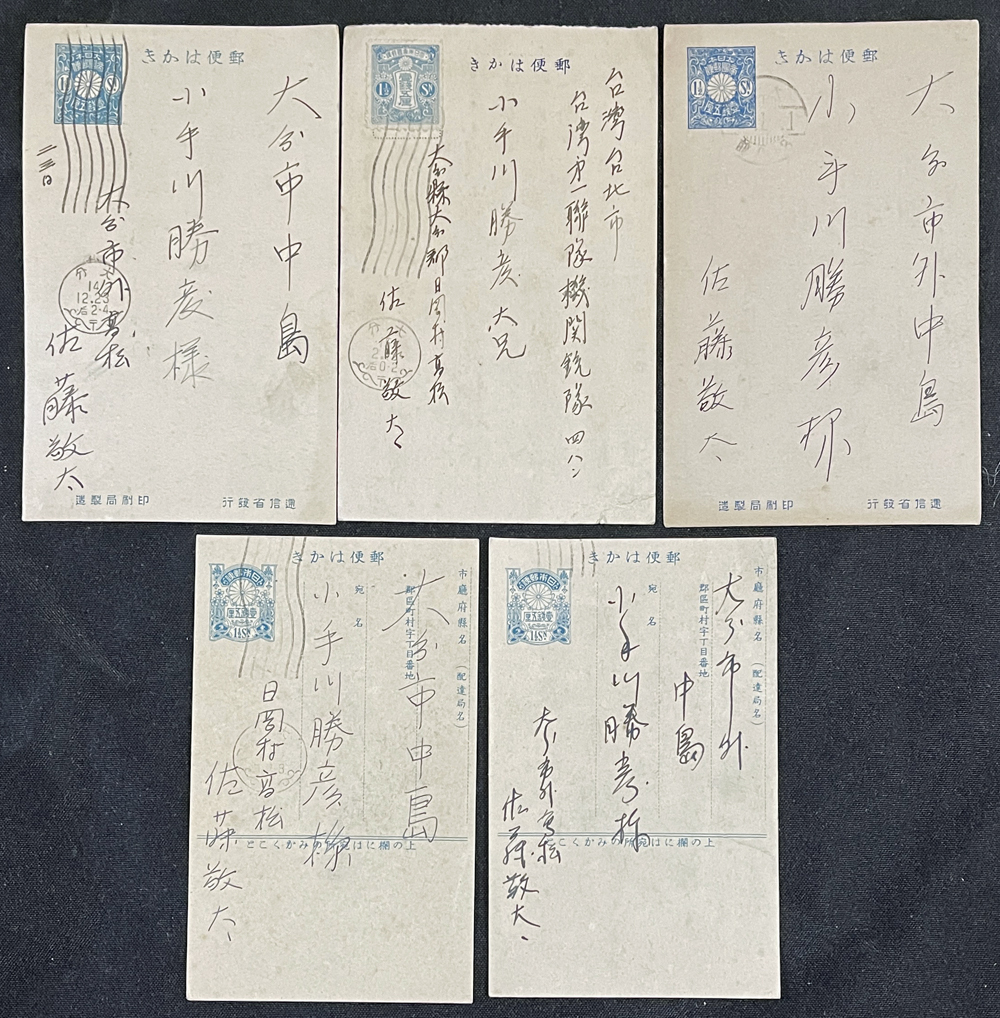 郵便はかき
大分市中島
小手川勝彦様
二三日
大分市外高松
佐藤敬太
14
12.23
后2-4
逓信省發行
印刷局製造
郵便はかき
1½ Sn
台灣台北市
台灣第一聯隊機関銃隊四ハン
小手川勝彦大兄
大分縣大分郡日岡村高松
佐藤敬太
郵便はかき
1½ Sn
大分市外中島
小手川勝彦様
佐藤敬太
逓信省發行
印刷局製造
郵便はかき
大日本帝國郵便
壹錢五厘
1½ Sn
市廳府縣名(配達局名)
郡區町村字丁目番地
宛名
大分市中島
小手川勝彦様
日岡村高松
佐藤敬太
上の欄には宛所のみかくこと
郵便はかき
壹錢五厘
1½ Sn
市廳府縣名(配達局名)
郡區町村字丁目番地
宛名
大分市外
中島
小手川勝彦様
大分市外高松
佐藤敬太
上の欄には宛所のみかくこと